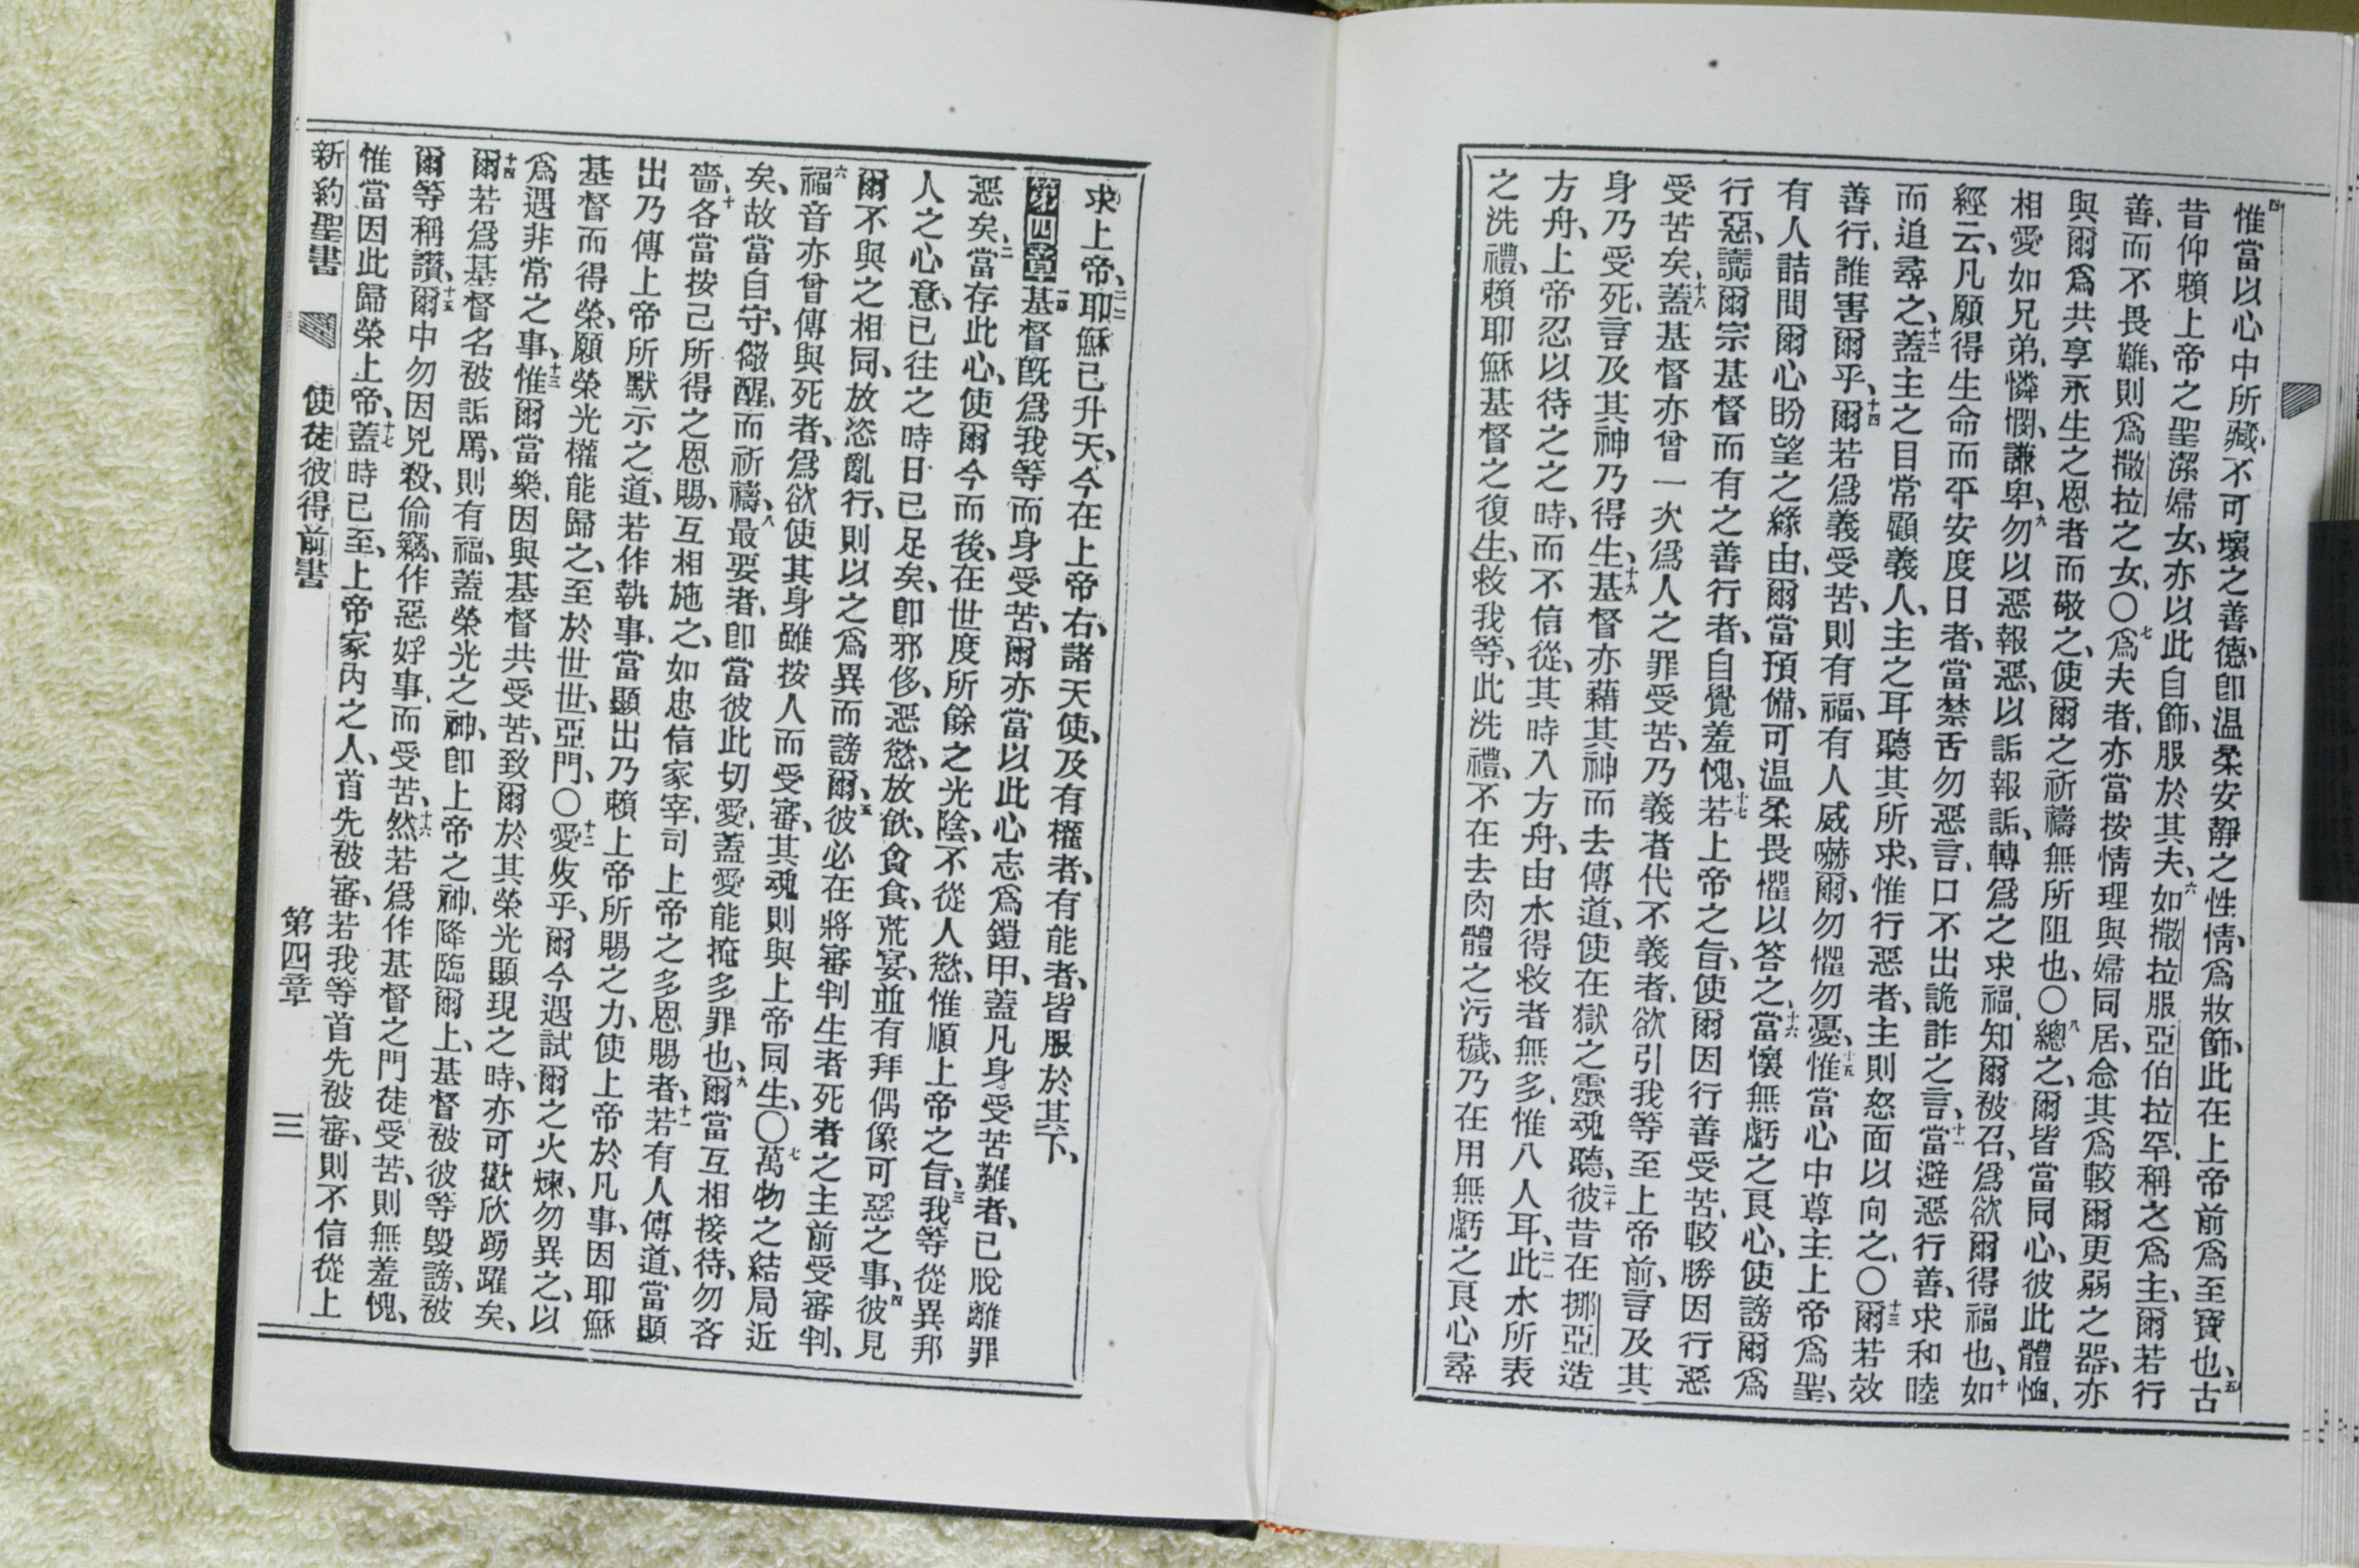 四惟當以心中所藏、不可壞之善德、卽温柔安靜之性情、爲妝飾、此在上帝前爲至寶也、五古
昔仰賴上帝之聖潔婦女、亦以此自飾、服於其夫、六如撒拉服亞伯拉罕、稱之爲主、爾若行
善、而不畏難、則爲撒拉之女、〇七爲夫者、亦當按情理與婦同居、念其爲較爾更弱之器、亦
與爾爲共享永生之恩者而敬之、使爾之祈禱無所阻也、〇八總之、爾皆當同心、彼此體恤、
相愛如兄弟、憐憫、謙卑、九勿以惡報惡、以詬報詬、轉爲之求福、知爾被召、爲欲爾得福也、十如
經云、凡願得生命而平安度日者、當禁舌勿惡言、口不出詭詐之言、十一當避惡行善、求和睦
而追尋之、十二蓋主之目常顧義人、主之耳聽其所求、惟行惡者、主則怒面以向之、〇十三爾若效
善行、誰害爾乎、十四爾若爲義受苦、則有福、有人威嚇爾、勿懼勿憂、十五惟當心中尊主上帝爲聖、
有人詰問爾心盼望之緣由、爾當預備、可温柔畏懼以答之、十六當懷無虧之良心、使謗爾爲
行惡、讟爾宗基督而有之善行者、自覺羞愧、十七若上帝之旨、使爾因行善受苦、較勝因行惡
受苦矣、十八蓋基督亦曾一次爲人之罪受苦、乃義者代不義者、欲引我等至上帝前、言及其
身乃受死、言及其神乃得生、十九基督亦藉其神而去傳道、使在獄之靈魂聽、二十彼昔在挪亞造
方舟、上帝忍以待之之時、而不信從、其時入方舟、由水得救者無多、惟八人耳、二一此水所表
之洗禮、賴耶穌基督之復生、救我等、此洗禮、不在去肉體之污穢、乃在用無虧之良心尋
求上帝、二二耶穌已升天、今在上帝右、諸天使、及有權者、有能者、皆服於其下、
第四章 一基督旣爲我等而身受苦、爾亦當以此心志爲鎧甲、蓋凡身受苦難者、已脫離罪
惡矣、二當存此心、使爾今而後、在世度所餘之光陰、不從人慾、惟順上帝之旨、三我等從異邦
人之心意、已往之時日已足矣、卽邪侈、惡慾、放飲、食食、荒宴、並有拜偶像可惡之事、四彼見
爾不與之相同、放恣亂行、則以之爲異而謗爾、五彼必在將審判生者死者之主前受審判、
六福音亦曾傳與死者、爲欲使其身雖按人而受審、其魂則與上帝同生、〇七萬物之結局近
矣、故當自守、儆醒、而祈禱、八最要者、卽當彼此切愛、蓋愛能掩多罪也、九爾當互相接待、勿吝
嗇、十各當按己所得之恩賜、互相施之、如忠信家宰、司上帝之多恩賜者、十一若有人傳道、當顯
出乃傳上帝所默示之道、若作執事、當顯出乃賴上帝所賜之力、使上帝於凡事、因耶穌
基督而得榮、願榮光權能歸之、至於世世、亞門、〇十二愛友乎、爾今遇試爾之火煉、勿異之、以
爲遇非常之事、十三惟爾當樂、因與基督共受苦、致爾於其榮光顯現之時、亦可歡欣踴躍矣、
十四爾若爲基督名被詬罵、則有福、蓋榮光之神、卽上帝之神、降臨爾上、基督被彼等毀謗、被
爾等稱讚、十五爾中勿因兇殺、偷竊、作惡、好事、而受苦、十六然若爲作基督之門徒受苦、則無羞愧、
惟當因此歸榮上帝、十七蓋時已至、上帝家內之人、首先被審、若我等首先被審、則不信從上
新約聖書　使徒彼得前書　第四章　三